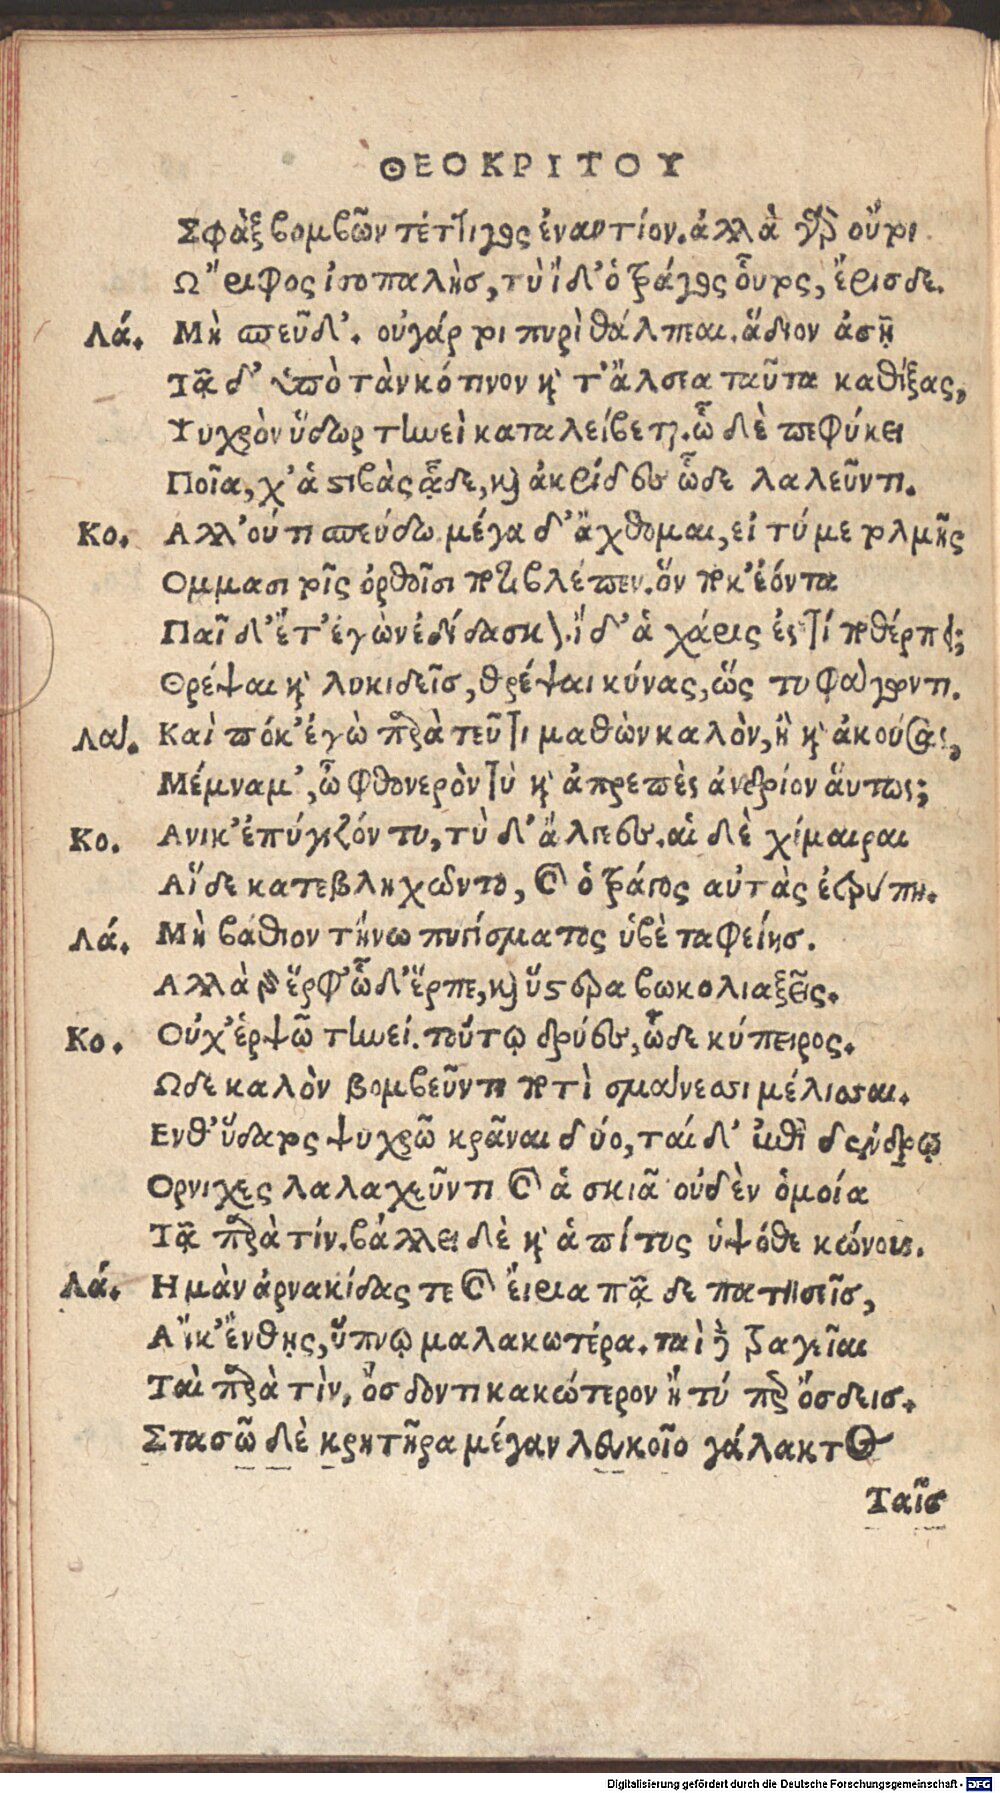 ΘΕΟΚΡΙΤΟΥ
Σφὰξ βομβῶν τέττιγος ἐναντίον. ἀλλὰ γὰρ οὔτι
Ω῎ριφος ἰσοπαλὴς, τὺ ἴδ' ὁ τράγος οὗτος, ἔρισδε.
Λά. Μὴ σπεῦδ'. οὐ γάρ τοι πυρὶ θάλπεαι. ἅδιον ἀσῇ
Τᾷδ' ὑπὸ τὰν κότινον κ' τ' ἄλσεα ταῦτα καθίξας,
Ψυχρὸν ὕδωρ τηνεὶ καταλείβεται. ὧδε πεφύκει
Ποῖα, χ' ἁ στιβὰς ᾇδε, καὶ ἀκρίδες ὧδε λαλεῦντι.
Κο. Αλλ' οὔτι σπεύδω μέγα δ' ἄχθομαι, εἰ τύ με τολμῇς
Ομμασι τοῖς ὀρθοῖσι ποτιβλέπεν. ὅν ποκ' ἐόντα
Παῖδ' ἔτ' ἐγὼν ἐδίδασκον. ἴδ' ἁ χάρις ἐς τί ποθέρπει;
Θρέψαι κ' λυκιδεῖς, θρέψαι κύνας, ὥς τυ φάγοντι.
Λα. Καὶ πόκ' ἐγὼ παρὰ τεῦ τι μαθὼν καλὸν, ἢ κ' ἀκούσας,
Μέμναμ', ὦ φθονερὸν τὺ κ' ἀπρεπὲς ἀνδρίον αὕτως;
Κο. Ανικ' ἐπύγιζόν τυ, τὺ δ' ἄλγεες. αἱ δὲ χίμαιραι
Αἵδε κατεβληχῶντο, καὶ ὁ τράγος αὐτὰς ἐτρύπη.
Λά. Μὴ βάθιον τήνω πυγίσματος ὑβὲ ταφείης.
Αλλὰ γὰρ ἕρφ' ὧδ' ἕρπε, καὶ ὕστατα βωκολιαξεῖς.
Κο. Οὐχ' ἑρψῶ τηνεί. τούτῳ δρύες, ὧδε κύπειρος.
Ωδε καλὸν βομβεῦντι ποτὶ σμάνεσσι μέλισσαι.
Ενθ' ὕδατος ψυχρῶ κρᾶναι δύο, ταὶ δ' ἐπὶ δένδρῳ
Ορνιχες λαλαχεῦντι καὶ ἁ σκιᾶ οὐδὲν ὁμοία
Τᾷ παρὰ τίν. βάλλει δὲ κ' ἁ πίτυς ὑψόθε κώνοις.
Λά. Η μὰν ἀρνακίδας τε καὶ εἴρια τᾷδε πατησεῖς,
Αἴκ' ἔνθῃς, ὕπνῳ μαλακωτέρα. ταὶ δὲ τραγεῖαι
Ταὶ παρὰ τὶν, ὄσδοντι κακώτερον ἢ τύ περ ὄσδεις.
Στασῶ δὲ κρητῆρα μέγαν λευκοῖο γάλακτος
Ταῖς
Digitalisierung gefördert durch die Deutsche Forschungsgemeinschaft - DFG